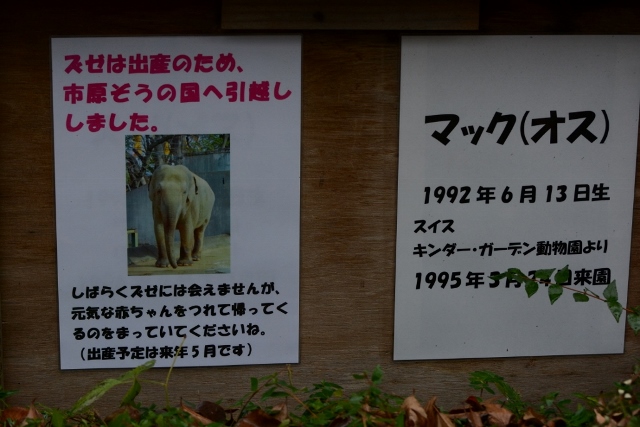 ズゼは出産のため、
市原ぞうの国へ引越し
しました。
しばらくズゼには会えませんが、
元気な赤ちゃんをつれて帰ってく
るのをまっていてくださいね。
（出産予定は来年５月です）
マック(オス)
1992年6月13日生
スイス
キンダー・ガーデン動物園より
1995年 月 日来園